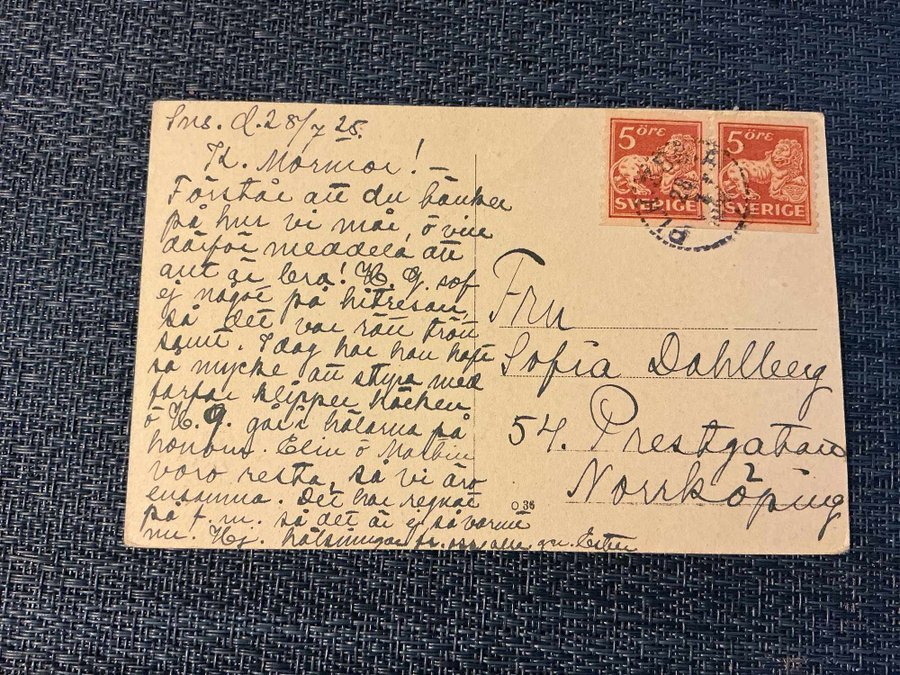 Sns. d. 28/7 25.
Kl. Mormor! —
Förstår att du tänker
på hur vi må, ö vill
därför meddela att
allt är bra! K. G. sof
ej något på hitresan,
så det var rätt trött
samt. Idag har han haft
så mycke att styra med
farfar klipper häcken
ö K. G. går i hälarna på
honom. Elin ö
voro resta, så vi äro
ensamma. Det har regnat
på f. m. så det är ej så varmt
nu. Hj. hälsningar fr. oss alla gm. Ester
5 ÖRE
SVERIGE
5 ÖRE
SVERIGE
Fru
Sofia Dahlberg
54. Prestgatan
Norrköping
O 36